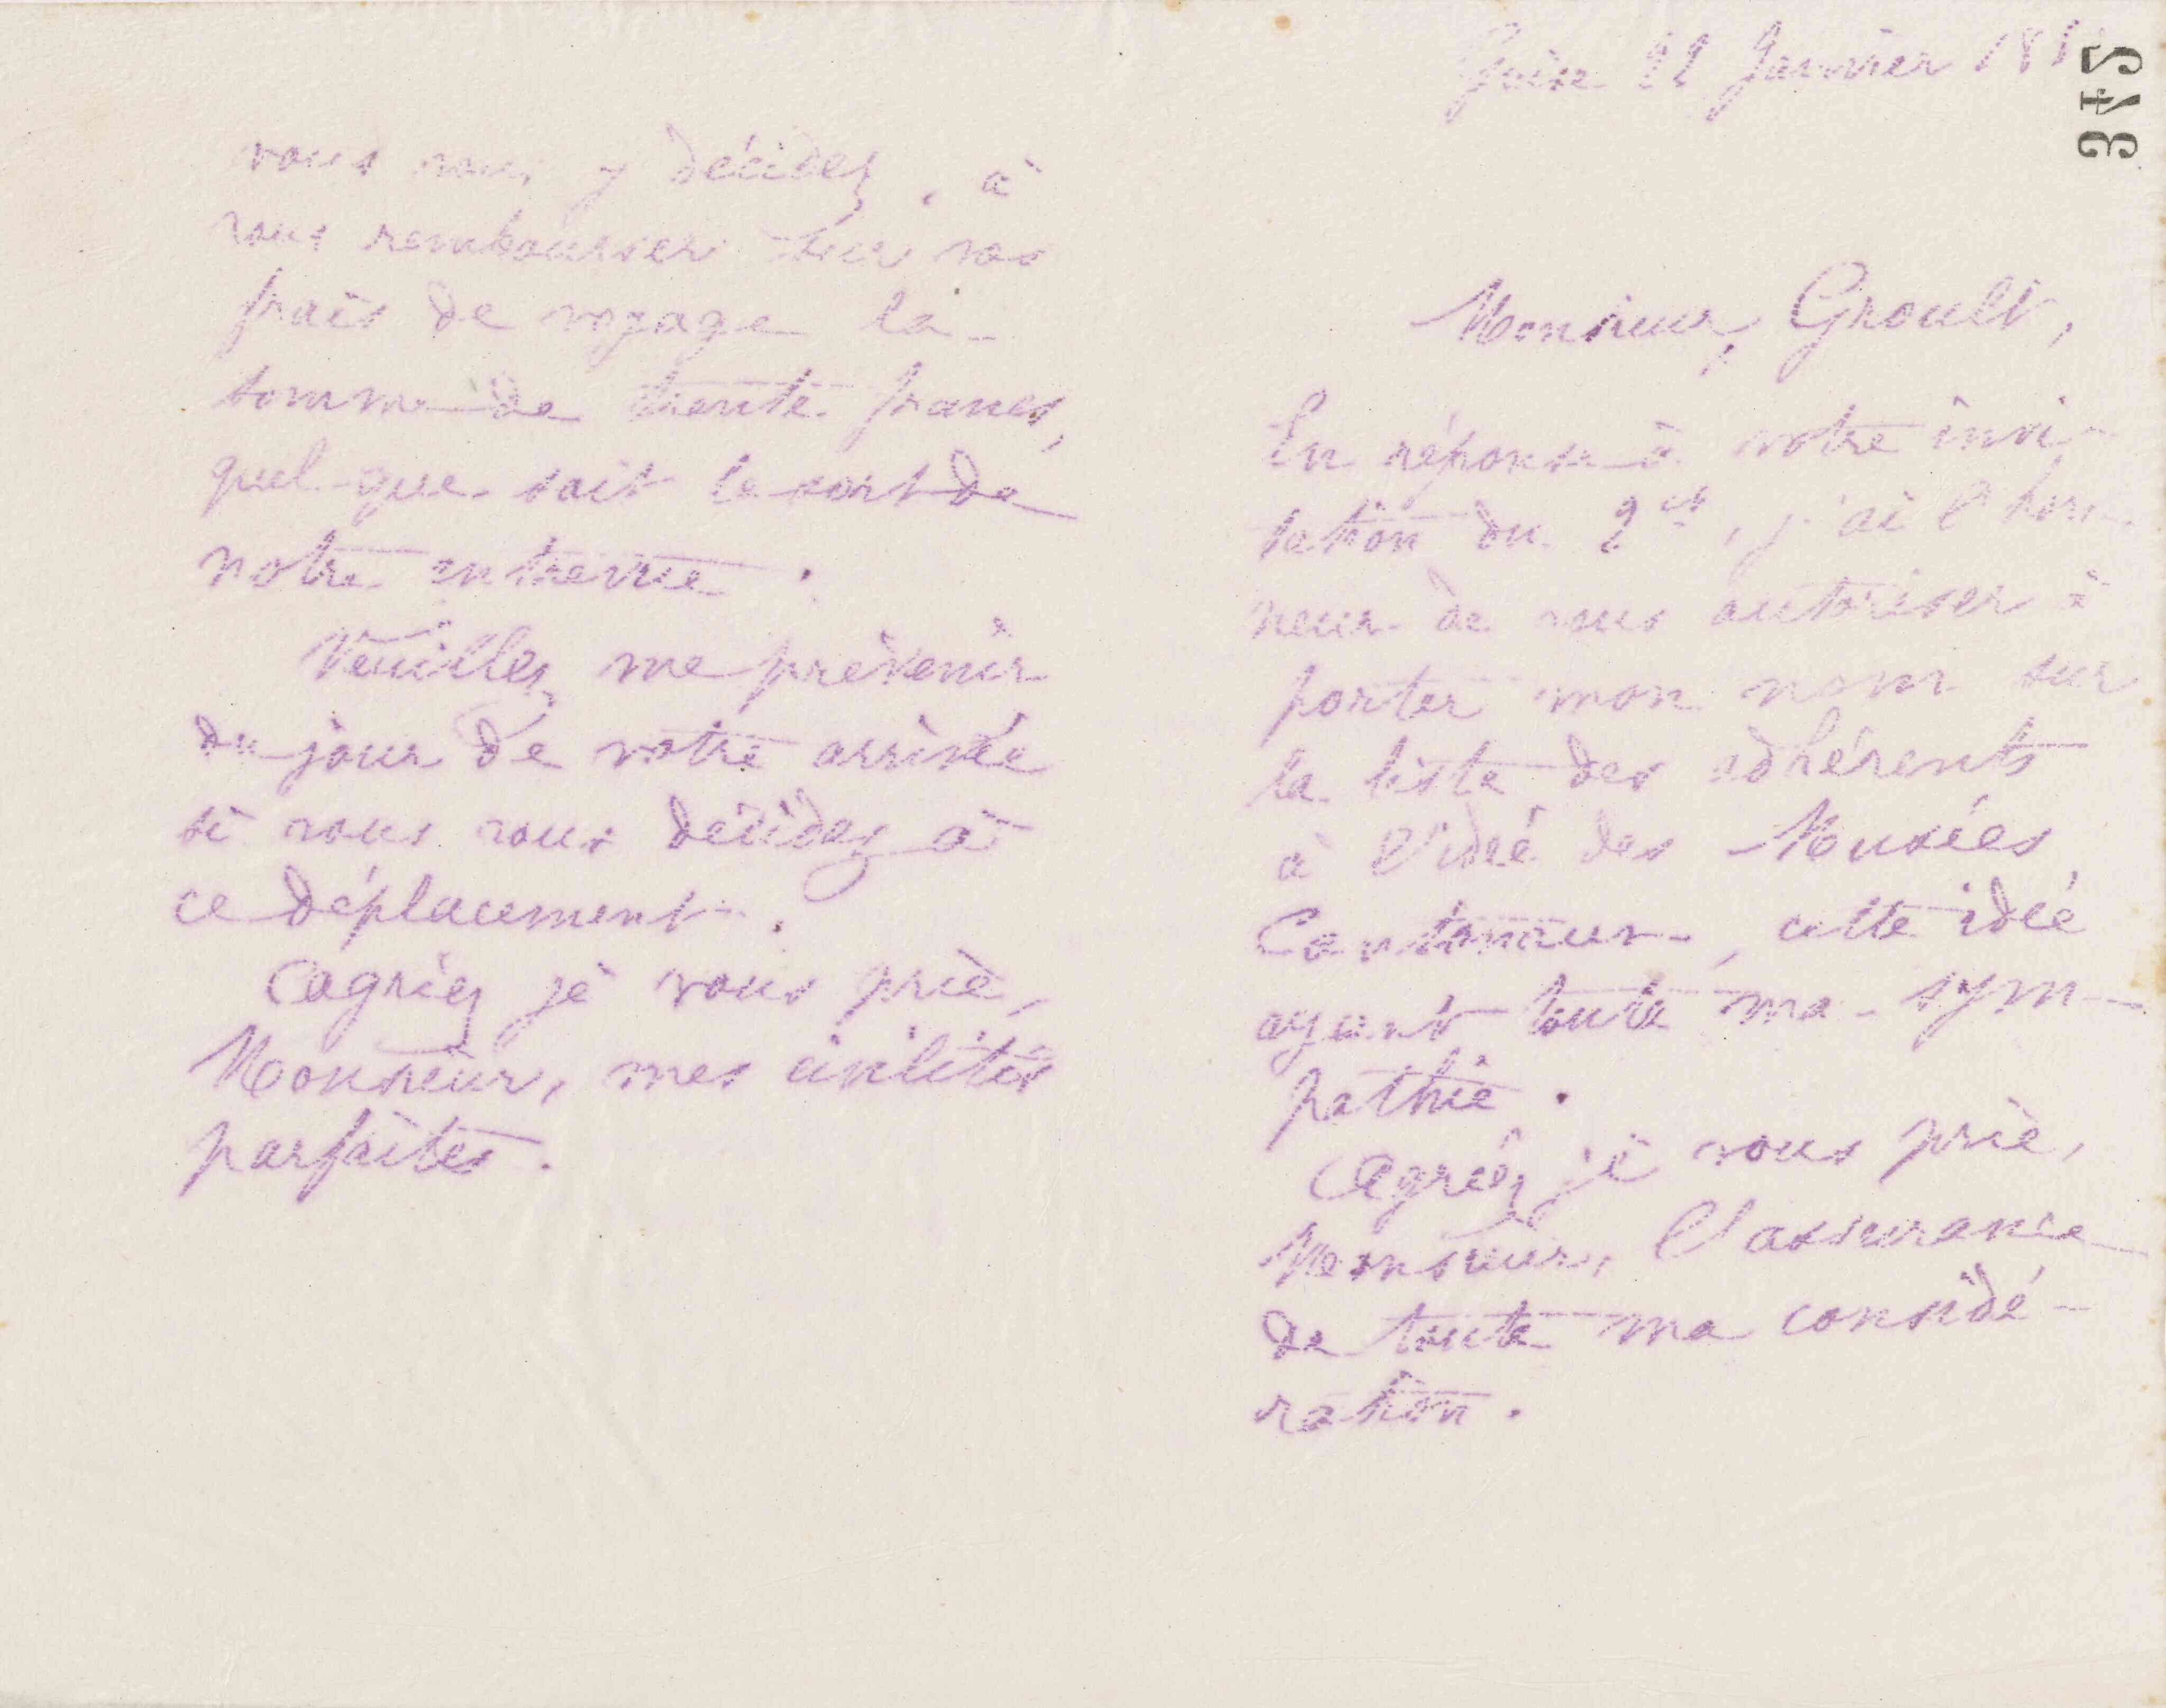 vous vous y décidez, à
vous rembourser sur vos
frais de voyage la
somme de trente francs,
quel que soit le sort de
notre entrevue.
Veuillez me prévenir
du jour de votre arrivée
si vous vous décidez à
ce déplacement.
Agréez je vous prie,
Monsieur, mes civilités
parfaites.
Guise 22 Janvier 18
342
Monsieur Groult,
En réponse à votre invi-
tation du 2 ct, j'ai l'hon-
neur de vous autoriser à
porter mon nom sur
la liste des adhérents
à l'idée des Musées
Cantonaux, cette idée
ayant toute ma sym-
pathie.
Agréez je vous prie,
Monsieur, l'assurance
de toute ma considé-
ration.